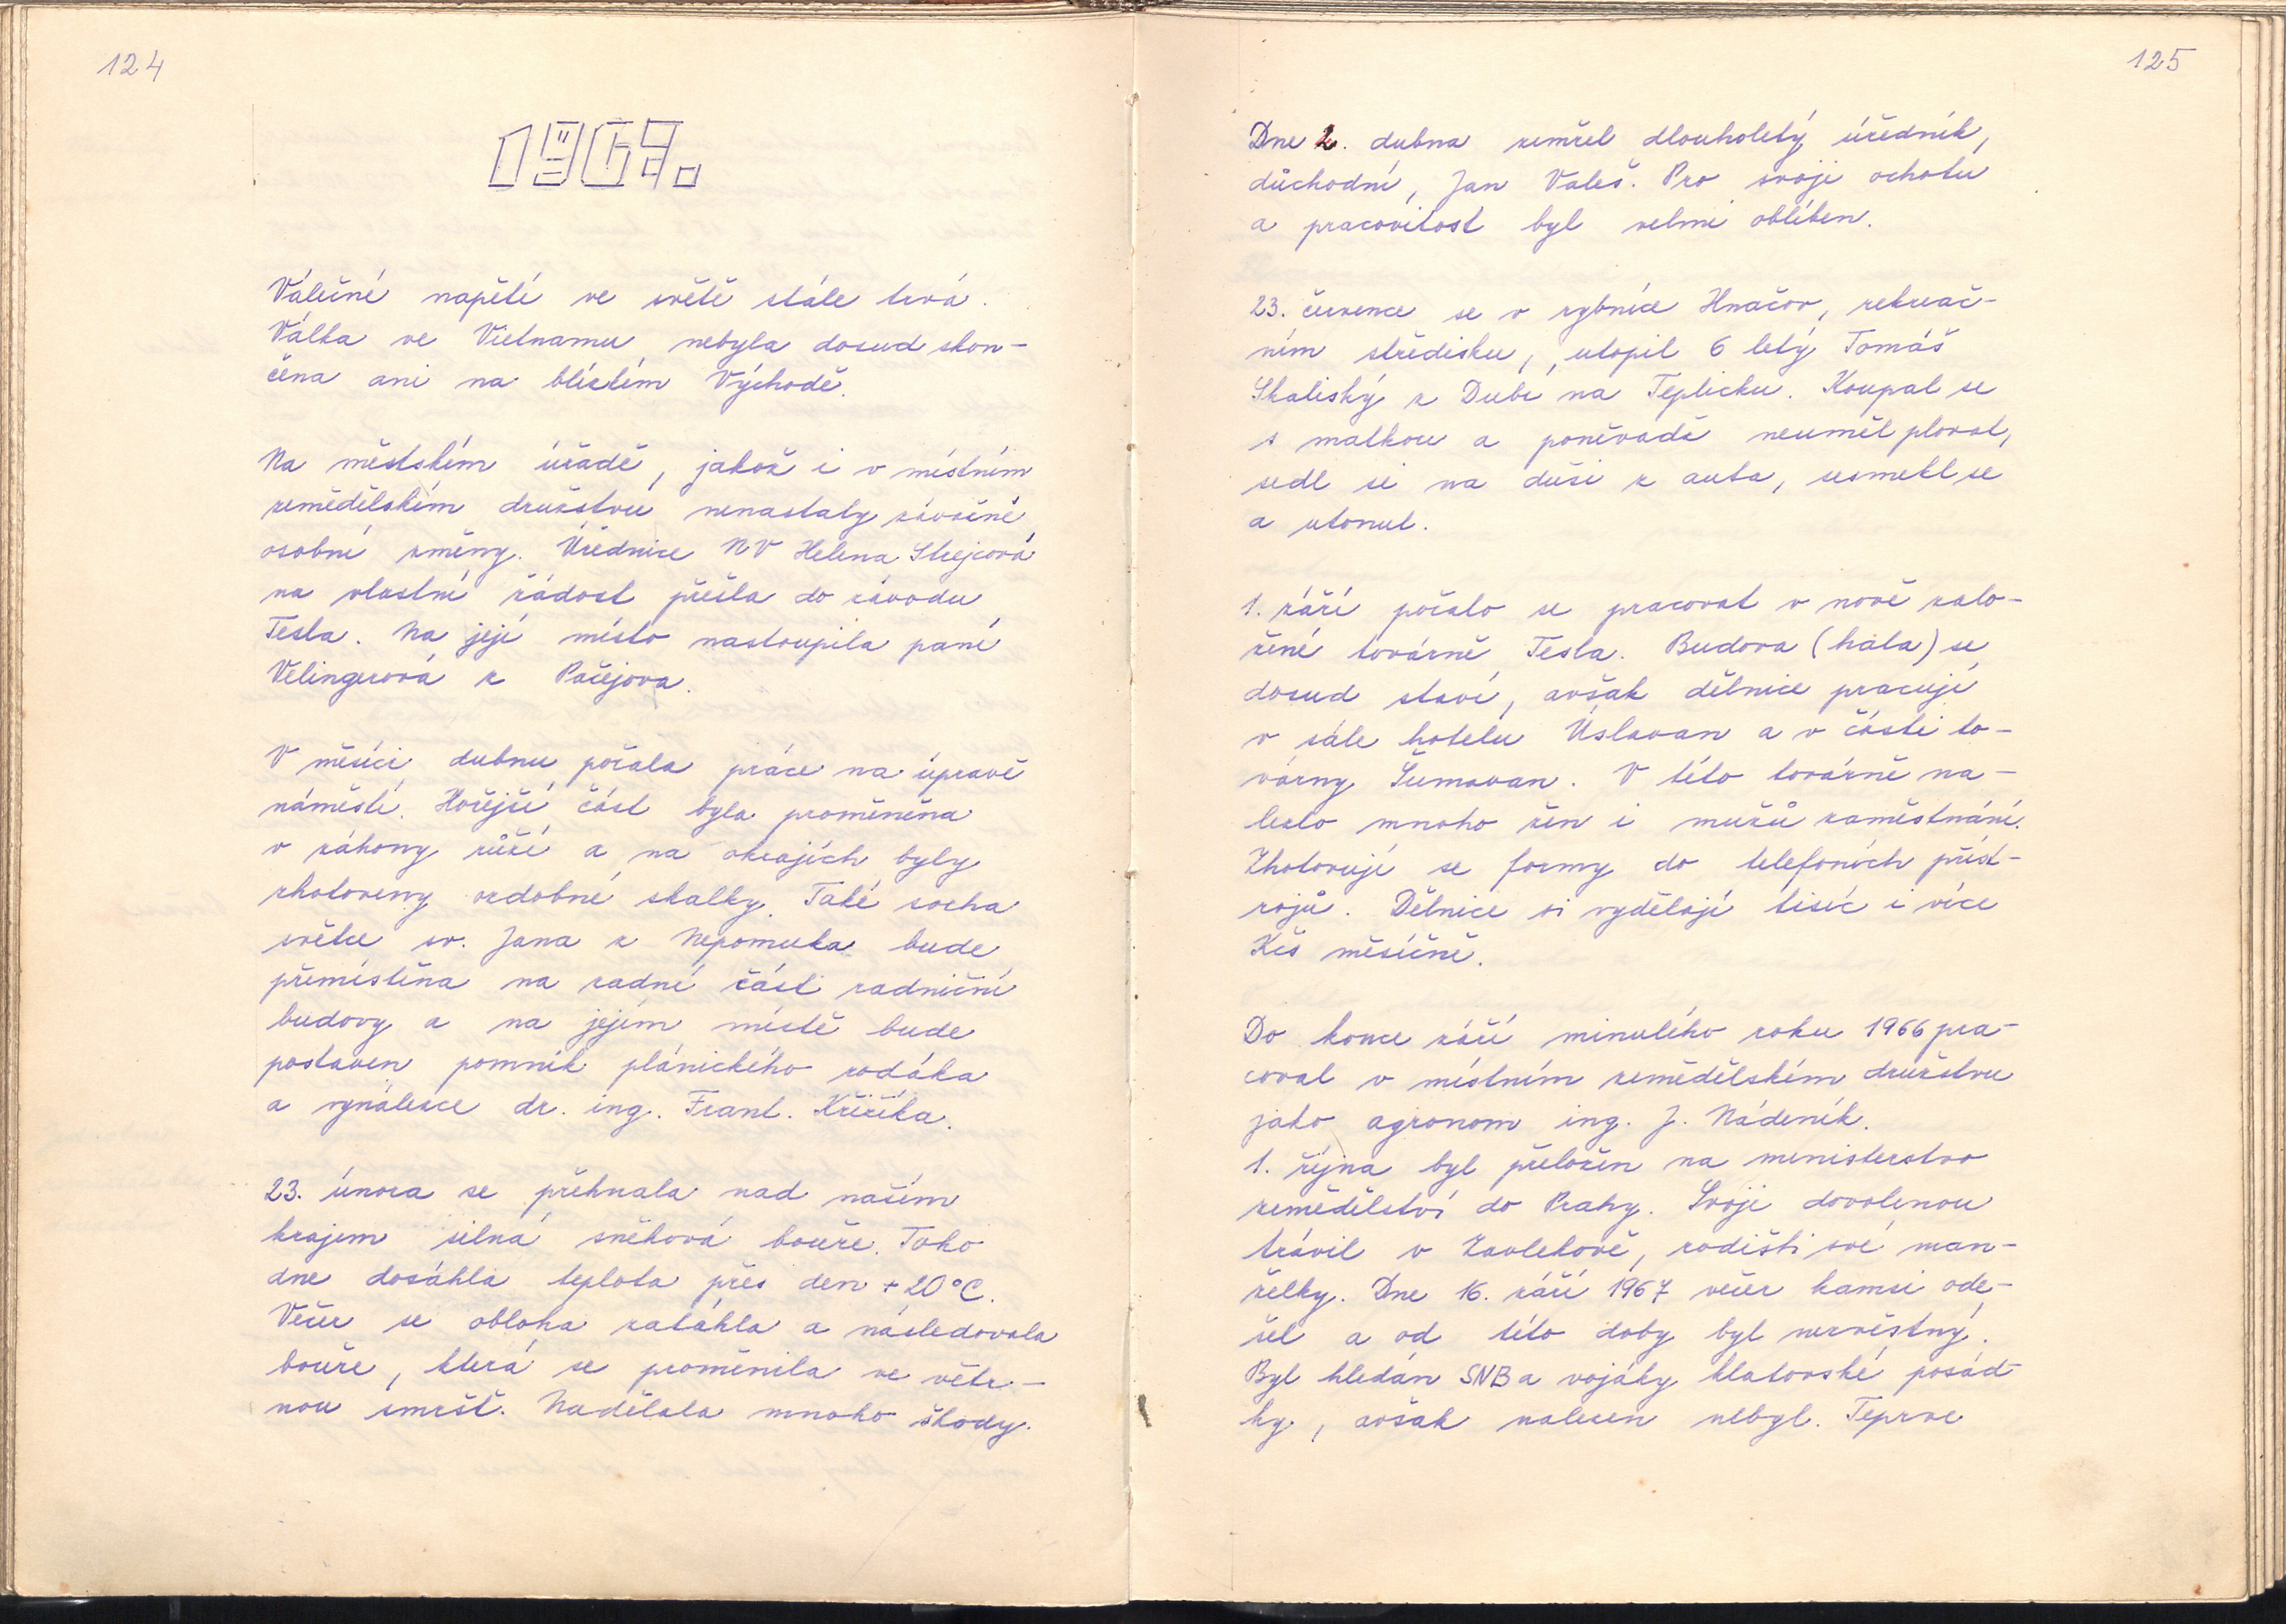 124
1967.
Válečné napětí ve světě stále trvá.
Válka ve Vietnamu nebyla dosud skon-
čena ani na blízkém Východě.
Na městském úřadě, jakož i v místním
zemědělském družstvu nenastaly závažné
osobní změny. Úřednice NV Helena Strejcová
na vlastní žádost přešla do závodu
Tesla. Na její místo nastoupila paní
Velingerová z Pačejova.
V měsíci dubnu počala práce na úpravě
náměstí. Hořejší část byla proměněna
v záhony růží a na okrajích byly
zhotoveny ozdobné skalky. Také socha
světce sv. Jana z Nepomuka bude
přemístěna na zadní část radniční
budovy a na jejím místě bude
postaven pomník plánického rodáka
a vynálezce dr. ing. Frant. Křižíka.
23. února se přehnala nad naším
krajem silná sněhová bouře. Toho
dne dosáhla teplota přes den +20°C.
Večer se obloha zatáhla a následovala
bouře, která se proměnila ve větr-
nou smršť. Nadělala mnoho škody.
125
Dne 2. dubna zemřel dlouholetý úředník,
důchodní, Jan Valeš. Pro svoji ochotu
a pracovitost byl velmi oblíben.
23. července se v rybníce Hnačov, rekreač-
ním středisku, utopil 6 letý Tomáš
Skaliský z Dubí na Teplicku. Koupal se
s matkou a poněvadž neuměl plovat,
sedl si na duši z auta, sesmekl se
a utonul.
1. září počalo se pracovat v nově zalo-
žené továrně Tesla. Budova (hala) se
dosud staví, avšak dělnice pracují
v sále hotelu Úslavan a v části to-
várny Šumavan. V této továrně na-
lezlo mnoho žen i mužů zaměstnání.
Zhotovují se formy do telefoních příst-
rojů. Dělnice si vydělají tisíc i více
Kčs měsíčně.
Do konce září minulého roku 1966 pra-
coval v místním zemědělském družstvu
jako agronom ing. J. Nádeník.
1. října byl přeložen na ministerstvo
zemědělství do Prahy. Svoji dovolenou
trávil v Zavlekově, rodišti své man-
želky. Dne 16. září 1967 večer kamsi ode-
šel a od této doby byl nezvěstný.
Byl hledán SNB a vojáky klatovské posád-
ky, avšak nalezen nebyl. Teprve